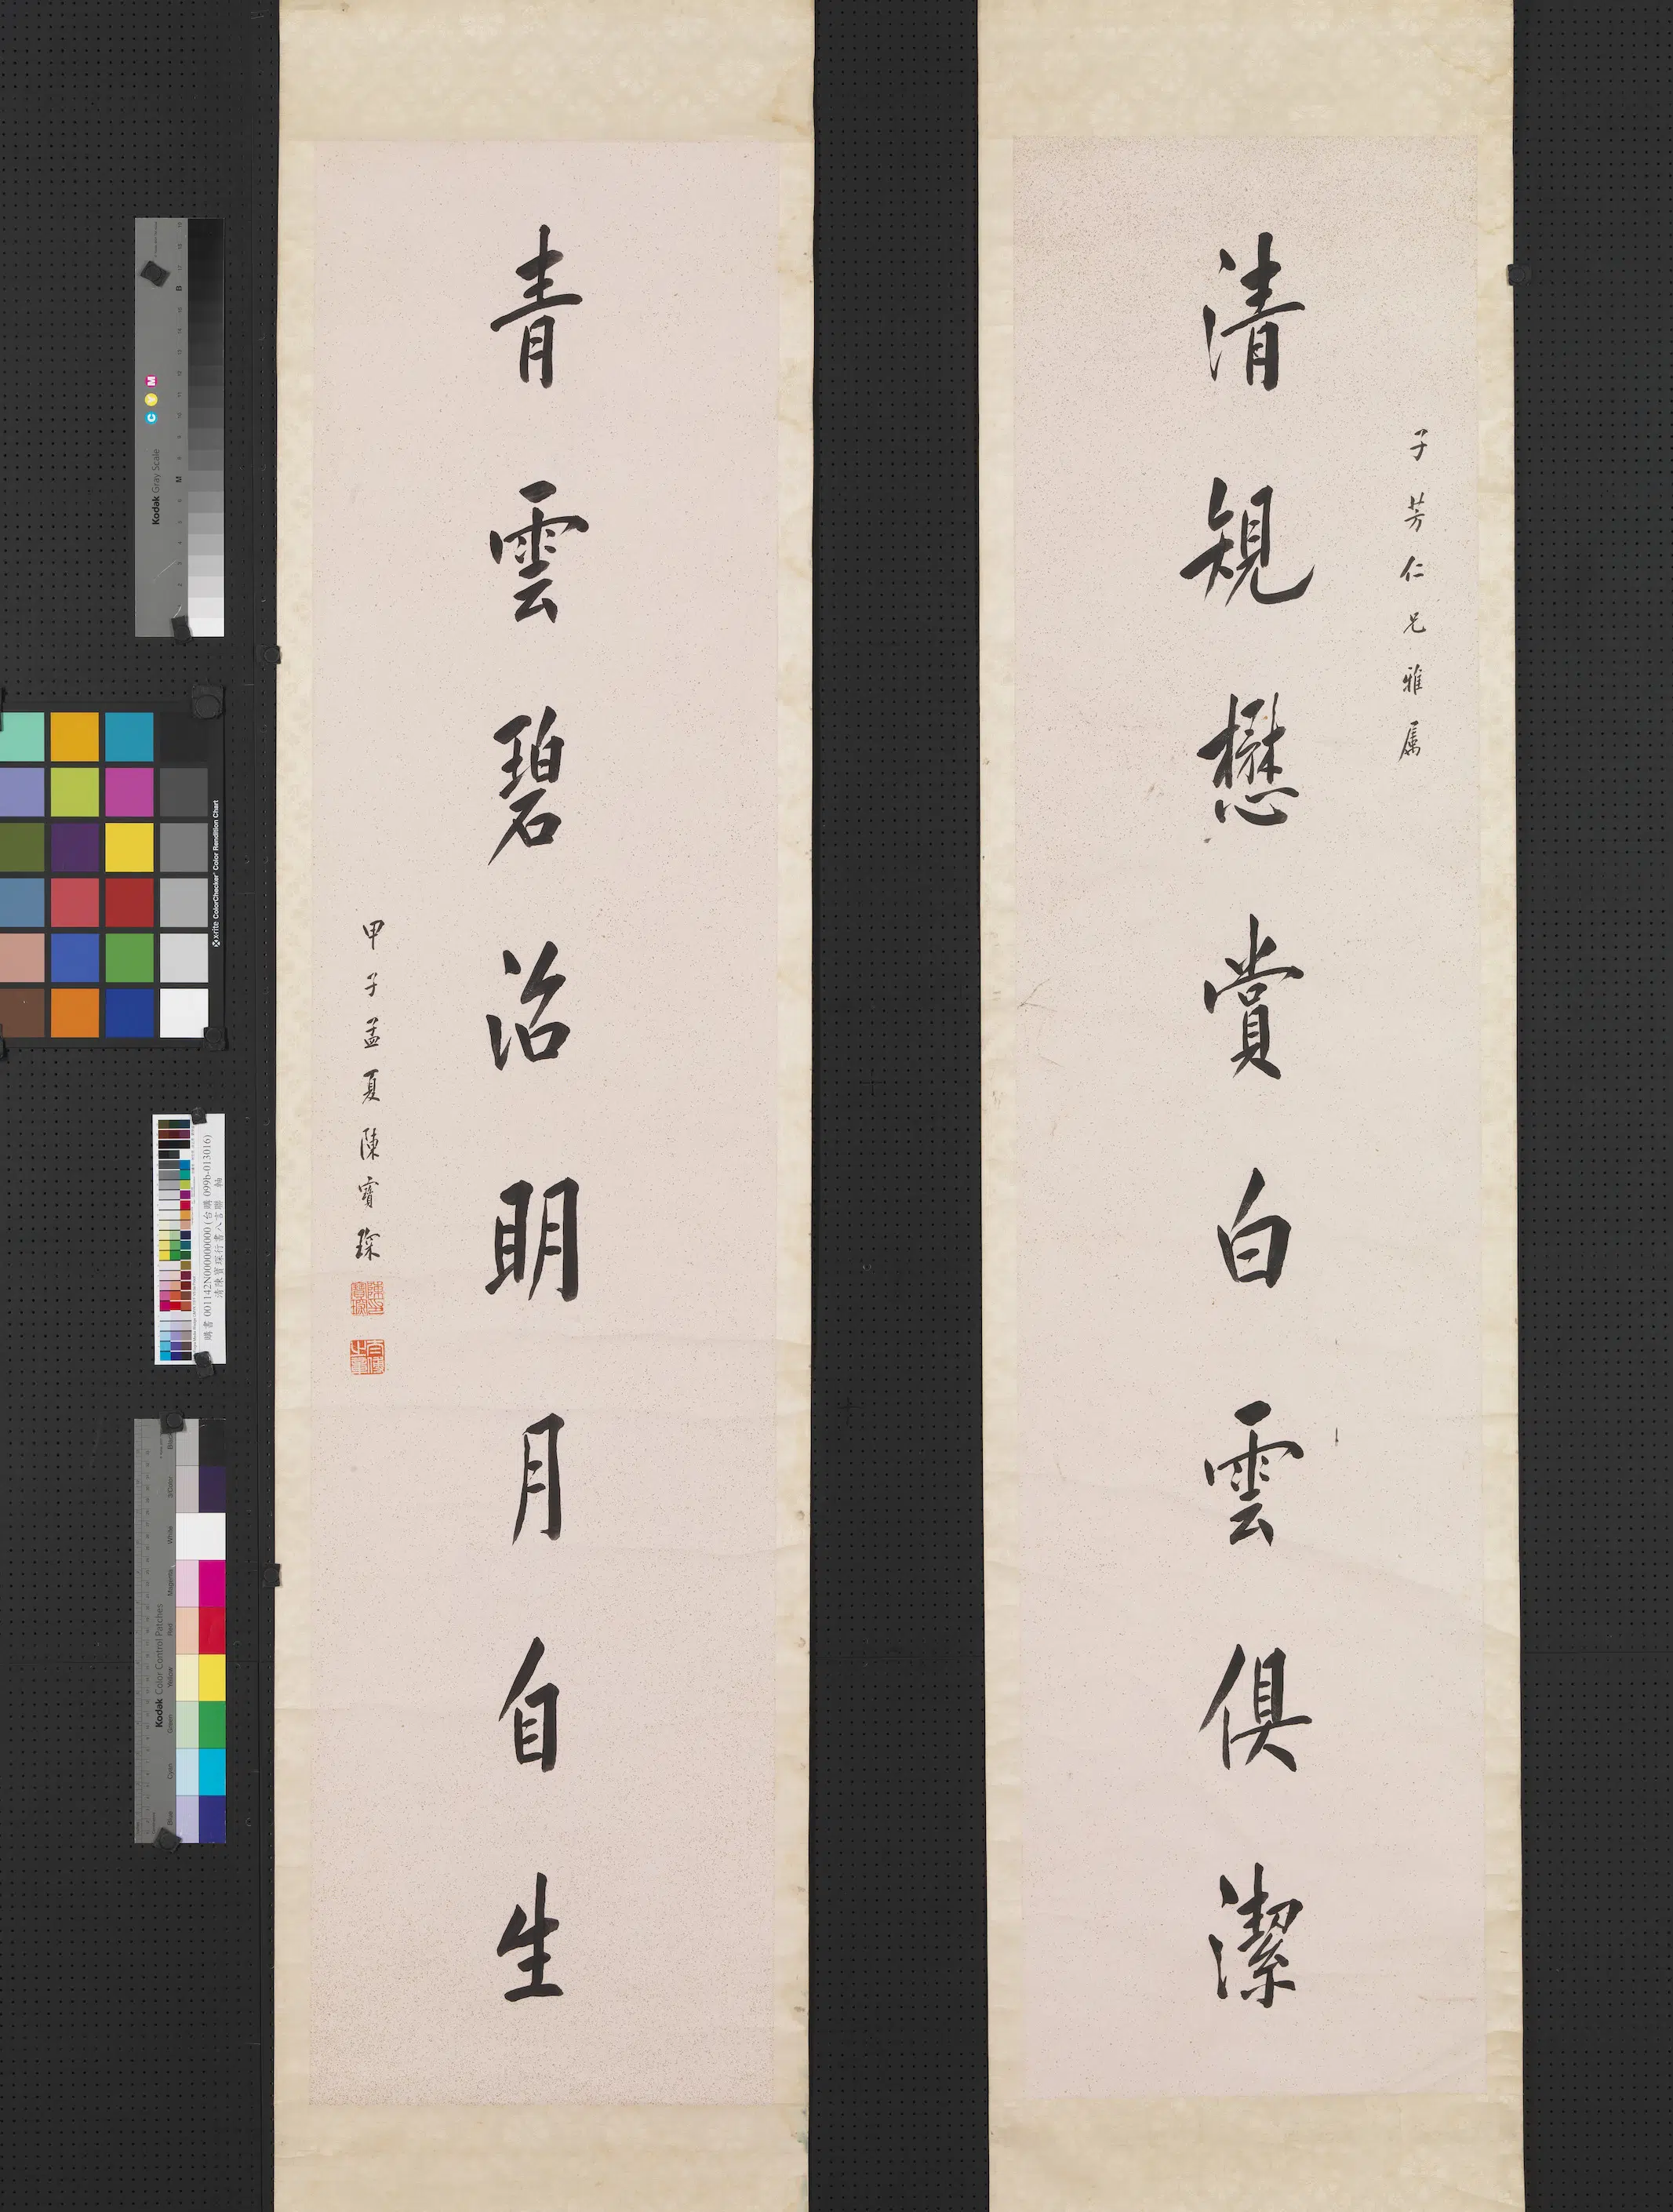 清規懋賞白雲俱潔
子芳仁兄雅屬
青雲碧沼朙月自生
甲子孟夏陳寶琛
太傅之章
Kodak Gray Scale
C Y M
B
M
x-rite ColorChecker Color Rendition Chart
購書 001142N000000000 (台購 099b-013016)
清陳寶琛行書八言聯 軸
Kodak Color Control Patches
Blue
Cyan
Green
Yellow
Red
Magenta
White
3/Color
Black